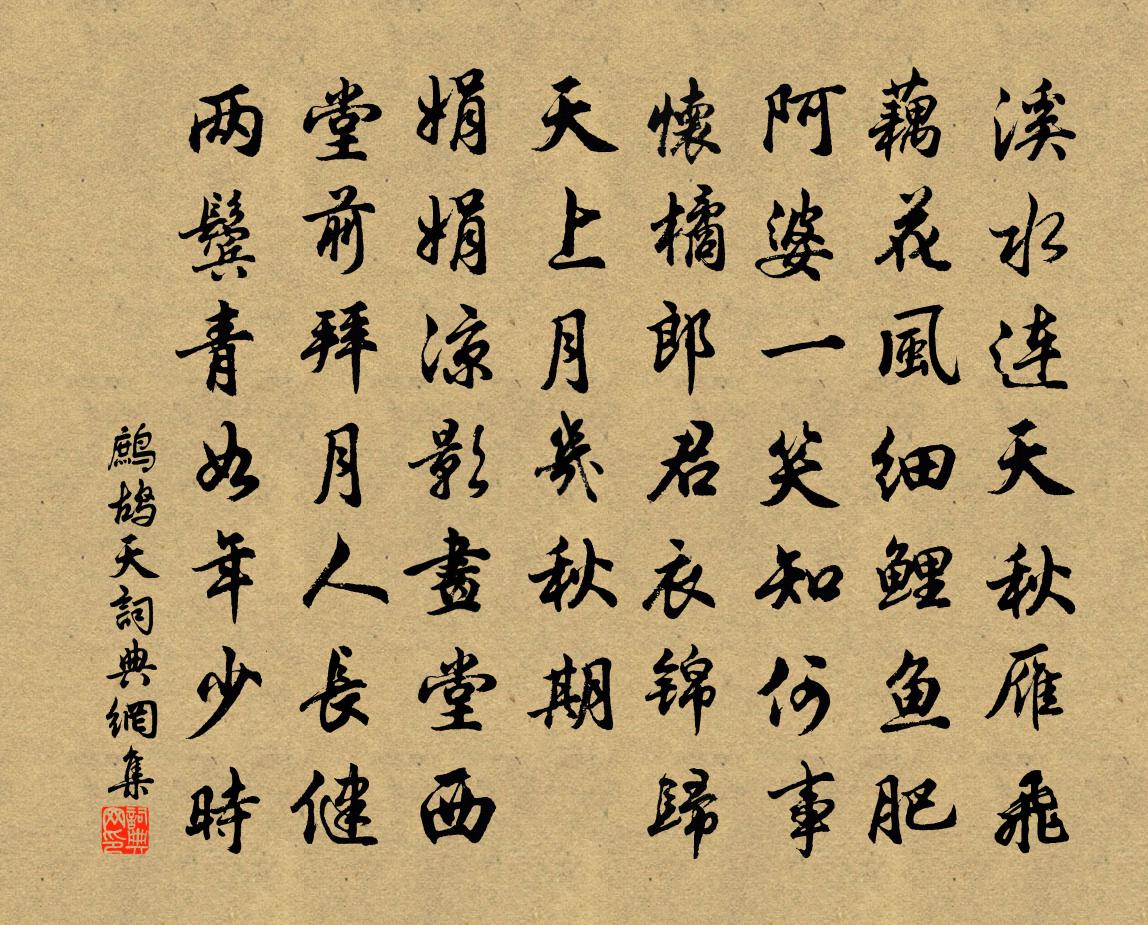 溪水连天秋雁飛
藕花風细鯉鱼肥
阿婆一笑知何事
懷橘郎君衣锦歸
天上月幾秋期
娟娟凉影畫堂西
堂前拜月人長健
两鬓青如年少時
鷓鴣天詞典網集
詞典网印